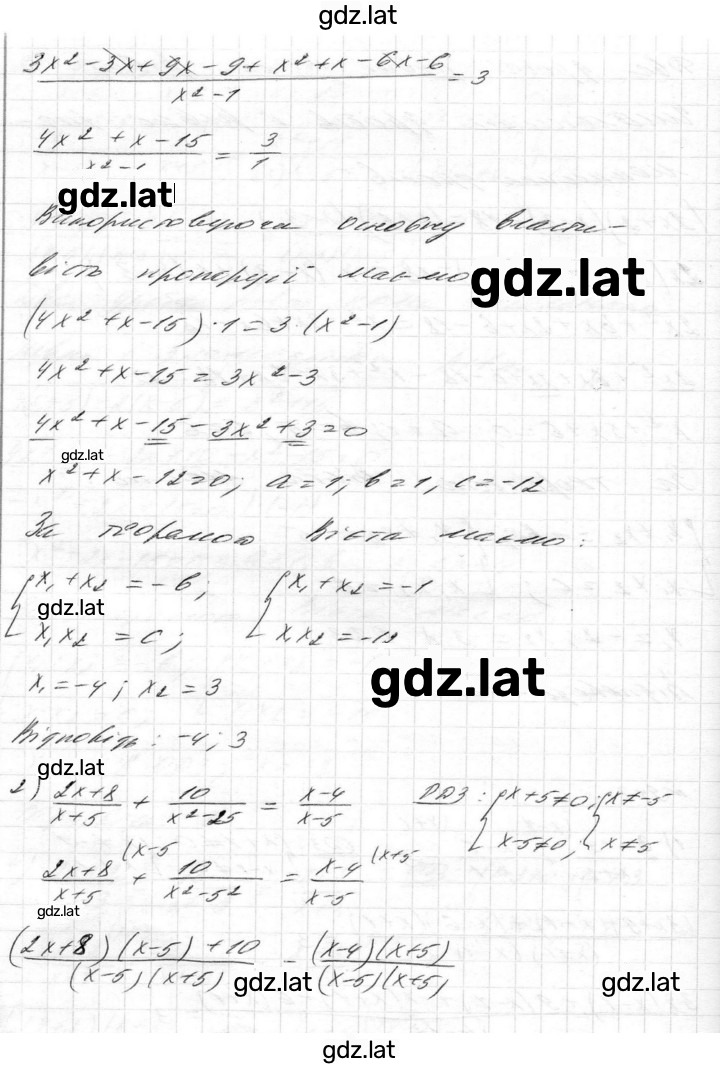 gdz.lat
3x² - 3x + 9x - 9 + x² + x - 6x - 6 / x² - 1 = 3
4x² + x - 15 / x² - 1 = 3/1
gdz.lat
Використовуючи основну власти-
вість пропорції маємо
gdz.lat
(4x² + x - 15) · 1 = 3 · (x² - 1)
4x² + x - 15 = 3x² - 3
4x² + x - 15 - 3x² + 3 = 0
gdz.lat
x² + x - 12 = 0; a = 1; b = 1, c = -12
За теоремою Вієта маємо:
{ x₁ + x₂ = -b; { x₁ + x₂ = -1
gdz.lat
x₁x₂ = c; x₁x₂ = -12
gdz.lat
x₁ = -4; x₂ = 3
Відповідь: -4; 3
gdz.lat
2) 2x+8 / x+5 + 10 / x²-25 = x-4 / x-5 ОДЗ: { x+5≠0; { x≠-5
x-5≠0; x≠5
2x+8 / x+5 (x-5 + 10 / x²-5² = x-4 / x-5 (x+5
gdz.lat
(2x+8)(x-5)+10 / (x-5)(x+5) = (x-4)(x+5) / (x-5)(x+5)
gdz.lat gdz.lat
gdz.lat